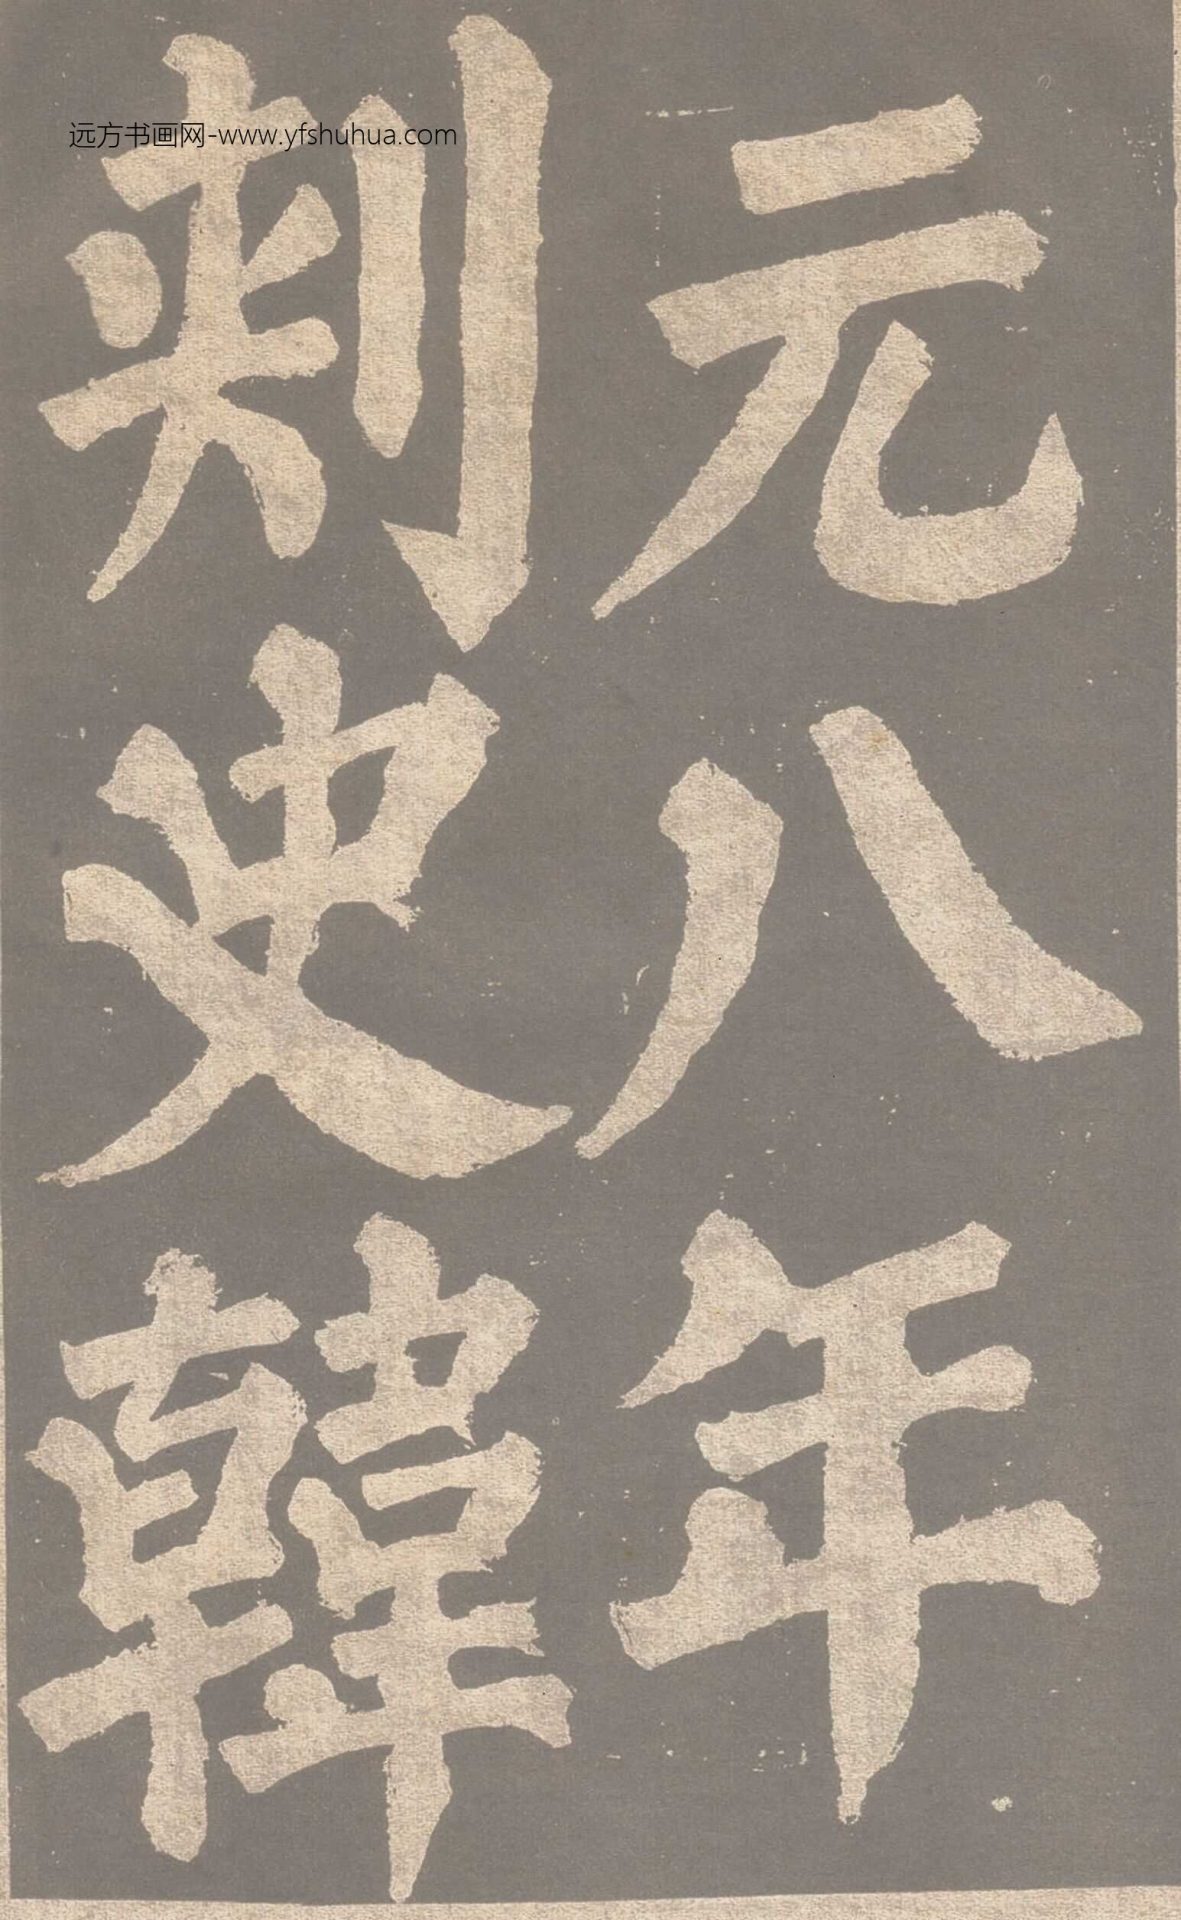 元八年
刺史韓
远方书画网-www.yfshuhua.com